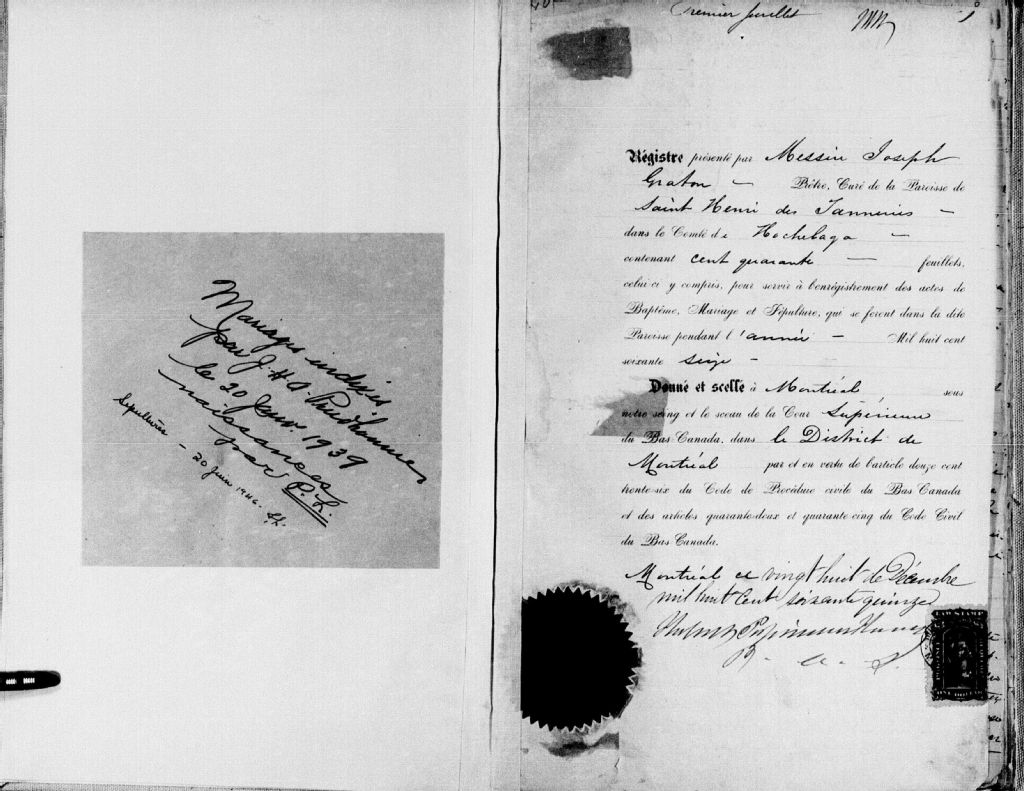 Mariages indexés
par J. H. A. Prudhomme
le 20 Janv. 1939
naissances
par P. L.
Sepultures
— 20 Juin 1946.
Premier feuillet
Régistre présenté par Messire Joseph
Graton — Prêtre, Curé de la Paroisse de
Saint Henri des Tanneries —
dans le Comté de Hochelaga —
contenant cent quarante — feuillets,
celui-ci y compris, pour servir à l'enrégistrement des actes de
Baptême, Mariage et Sépulture, qui se feront dans la dite
Paroisse pendant l'année — Mil huit cent
soixante seize —
Donné et scellé à Montréal sous
notre seing et le sceau de la Cour Supérieure
du Bas Canada, dans le District de
Montréal par et en vertu de l'article douze cent
trente-six du Code de Procédure civile du Bas Canada
et des articles quarante-deux et quarante-cinq du Code Civil
du Bas Canada.
Montréal ce vingt huit de Décembre
mil huit cent soixante quinze
LAW STAMP
ONE DOLLAR